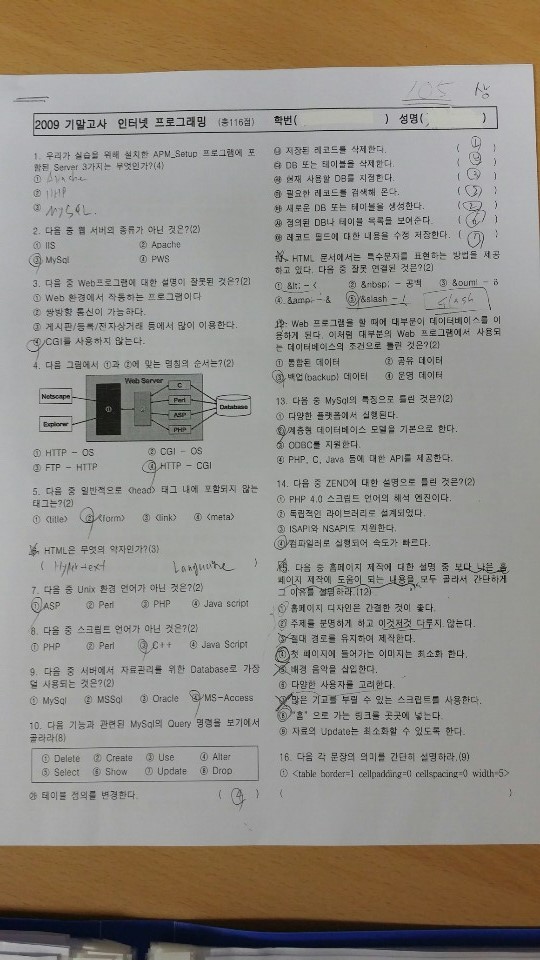 105 상
2009 기말고사 인터넷 프로그래밍 (총116점) 학번( ) 성명( )
1. 우리가 실습을 위해 설치한 APM_Setup 프로그램에 포
함된 Server 3가지는 무엇인가?(4)
① Apache
② PHP
③ MySQL.
2. 다음 중 웹 서버의 종류가 아닌 것은?(2)
① IIS ② Apache
③ MySql ④ PWS
3. 다음 중 Web프로그램에 대한 설명이 잘못된 것은?(2)
① Web 환경에서 작동하는 프로그램이다
② 쌍방향 통신이 가능하다.
③ 게시판/등록/전자상거래 등에서 많이 이용한다.
④ CGI를 사용하지 않는다.
4. 다음 그림에서 ①과 ②에 맞는 명칭의 순서는?(2)
Web Server
Netscape
Explorer
①
C
Perl
ASP
PHP
Database
① HTTP - OS ② CGI - OS
③ FTP - HTTP ④ HTTP - CGI
5. 다음 중 일반적으로 <head> 태그 내에 포함되지 않는
태그는?(2)
① <title> ② <form> ③ <link> ④ <meta>
6. HTML은 무엇의 약자인가?(3)
( Hyper-text Language )
7. 다음 중 Unix 환경 언어가 아닌 것은?(2)
① ASP ② Perl ③ PHP ④ Java script
8. 다음 중 스크립트 언어가 아닌 것은?(2)
① PHP ② Perl ③ C++ ④ Java Script
9. 다음 중 서버에서 자료관리를 위한 Database로 가장
덜 사용되는 것은?(2)
① MySql ② MSSql ③ Oracle ④ MS-Access
10. 다음 기능과 관련된 MySql의 Query 명령을 보기에서
골라라(8)
① Delete ② Create ③ Use ④ Alter
⑤ Select ⑥ Show ⑦ Update ⑧ Drop
㉮ 테이블 정의를 변경한다. ( ④ )
㉯ 저장된 레코드를 삭제한다. ( ① )
㉰ DB 또는 테이블을 삭제한다. ( )
㉱ 현재 사용할 DB를 지정한다. ( ③ )
㉲ 필요한 레코드를 검색해 온다. ( )
㉳ 새로운 DB 또는 테이블을 생성한다. ( ② )
㉴ 정의된 DB나 테이블 목록을 보여준다. ( ⑥ )
㉵ 레코드 필드에 대한 내용을 수정 저장한다. ( ⑦ )
11. HTML 문서에서는 특수문자를 표현하는 방법을 제공
하고 있다. 다음 중 잘못 연결된 것은?(2)
① &lt; - < ② &nbsp; - 공백 ③ &ouml - ö
④ &amp; - & ⑤ &slash - / slash
12. Web 프로그램을 할 때에 대부분이 데이터베이스를 이
용하게 된다. 이처럼 대부분의 Web 프로그램에서 사용되
는 데이터베이스의 조건으로 틀린 것은?(2)
① 통합된 데이터 ② 공유 데이터
③ 백업(backup) 데이터 ④ 운영 데이터
13. 다음 중 MySql의 특징으로 틀린 것은?(2)
① 다양한 플랫폼에서 실행된다.
② 계층형 데이터베이스 모델을 기본으로 한다.
③ ODBC를 지원한다.
④ PHP, C, Java 등에 대한 API를 제공한다.
14. 다음 중 ZEND에 대한 설명으로 틀린 것은?(2)
① PHP 4.0 스크립트 언어의 해석 엔진이다.
② 독립적인 라이브러리로 설계되었다.
③ ISAPI와 NSAPI도 지원한다.
④ 컴파일러로 실행되어 속도가 빠르다.
15. 다음 중 홈페이지 제작에 대한 설명 중 보다 나은 홈
페이지 제작에 도움이 되는 내용을 모두 골라서 간단하게
그 이유를 설명하라.(12)
① 홈페이지 디자인은 간결한 것이 좋다.
② 주제를 분명하게 하고 이것저것 다루지 않는다.
③ 절대 경로를 유지하여 제작한다.
④ 첫 페이지에 들어가는 이미지는 최소화 한다.
⑤ 배경 음악을 삽입한다.
⑥ 다양한 사용자를 고려한다.
⑦ 많은 기교를 부릴 수 있는 스크립트를 사용한다.
⑧ "홈" 으로 가는 링크를 곳곳에 넣는다.
⑨ 자료의 Update는 최소화할 수 있도록 한다.
16. 다음 각 문장의 의미를 간단히 설명하라.(9)
① <table border=1 cellpadding=0 cellspacing=0 width=5>
( )